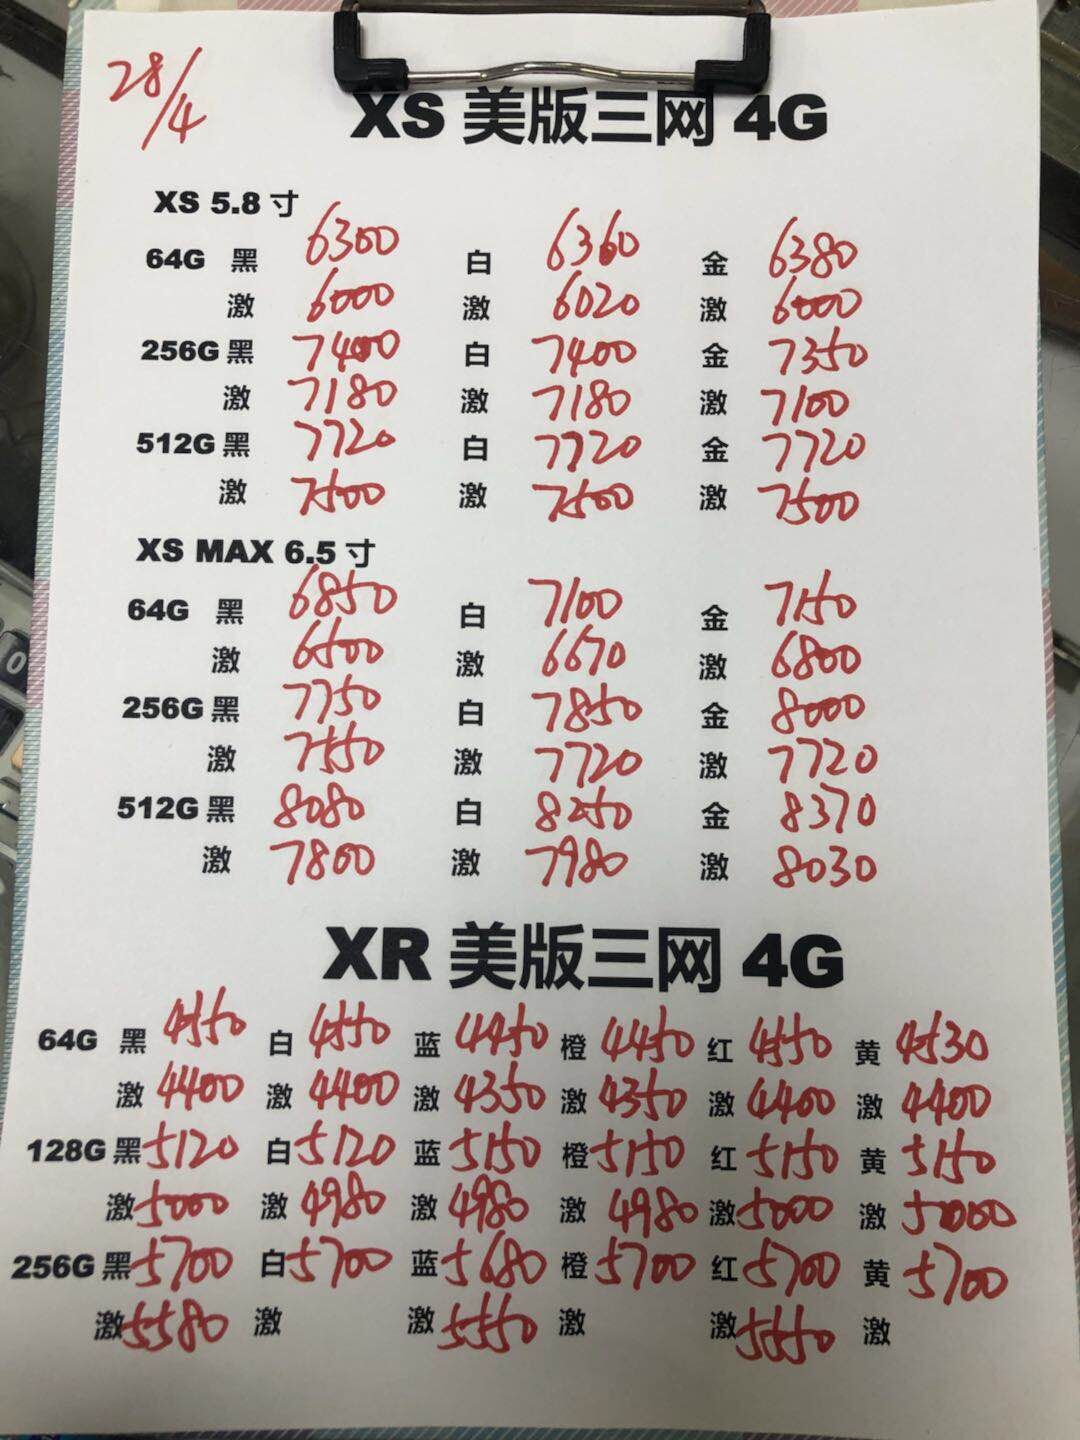 28/4
XS 美版三网 4G
XS 5.8 寸
64G 黑 6300 白 6360 金 6380
激 6000 激 6020 激 6000
256G 黑 7400 白 7400 金 7350
激 7180 激 7180 激 7100
512G 黑 7720 白 7720 金 7720
激 7500 激 7500 激 7500
XS MAX 6.5 寸
64G 黑 6850 白 7100 金 7150
激 6500 激 6670 激 6800
256G 黑 7750 白 7850 金 8000
激 7550 激 7720 激 7720
512G 黑 8080 白 8250 金 8370
激 7800 激 7980 激 8030
XR 美版三网 4G
64G 黑 4550 白 4550 蓝 4450 橙 4450 红 4550 黄 4530
激 4400 激 4400 激 4350 激 4350 激 4400 激 4400
128G 黑 5120 白 5120 蓝 5150 橙 5150 红 5150 黄 5150
激 5000 激 4980 激 4980 激 4980 激 5000 激 5000
256G 黑 5700 白 5700 蓝 5680 橙 5700 红 5700 黄 5700
激 5580 激 激 5550 激 激 5550 激